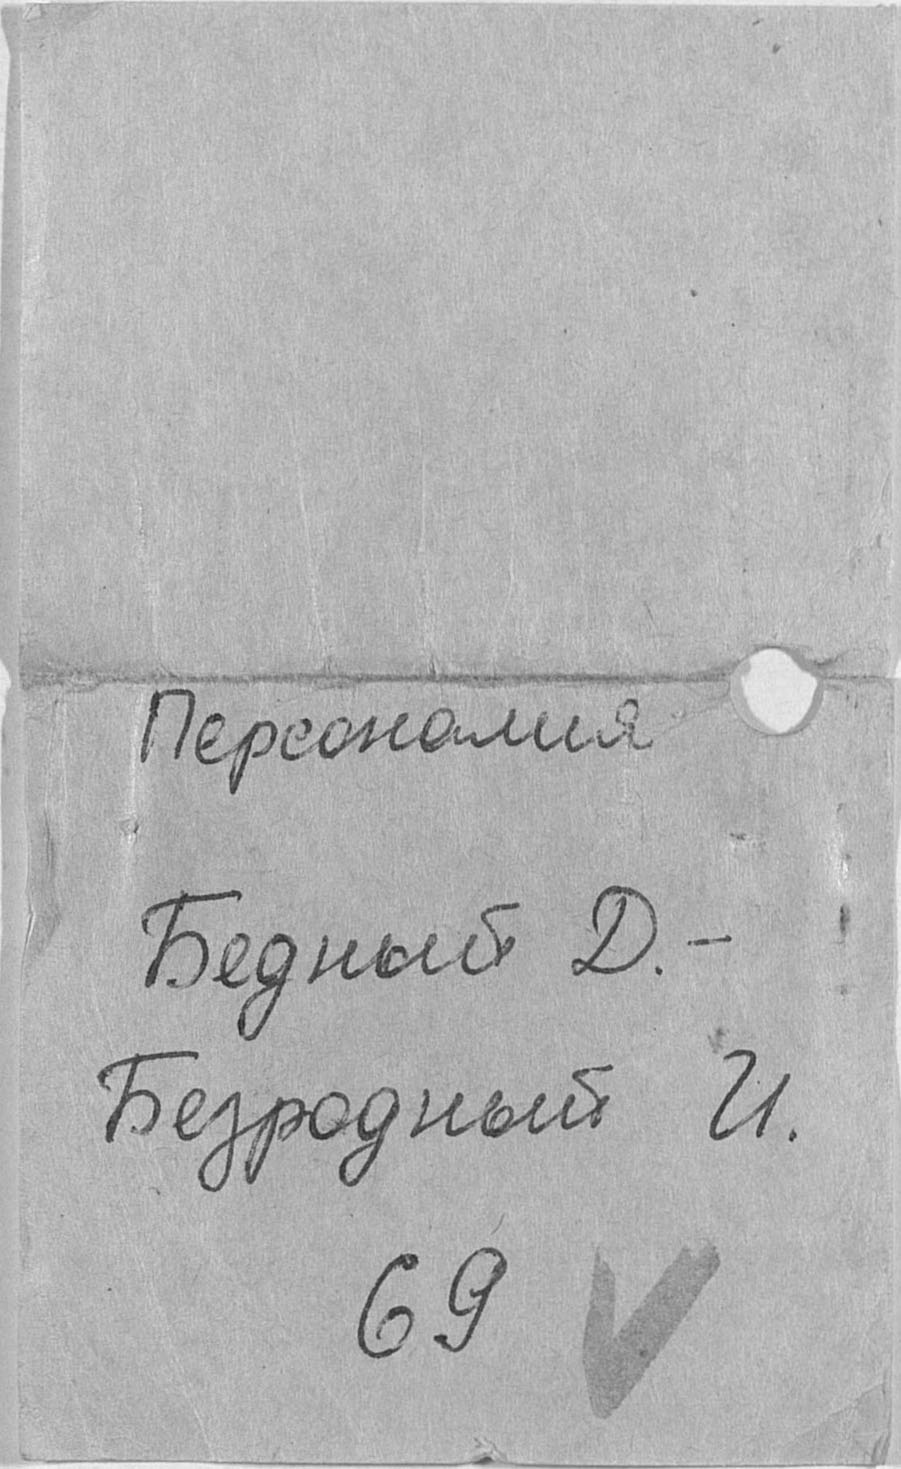 Персоналия
Бедный Д.-
Безродный И.
69